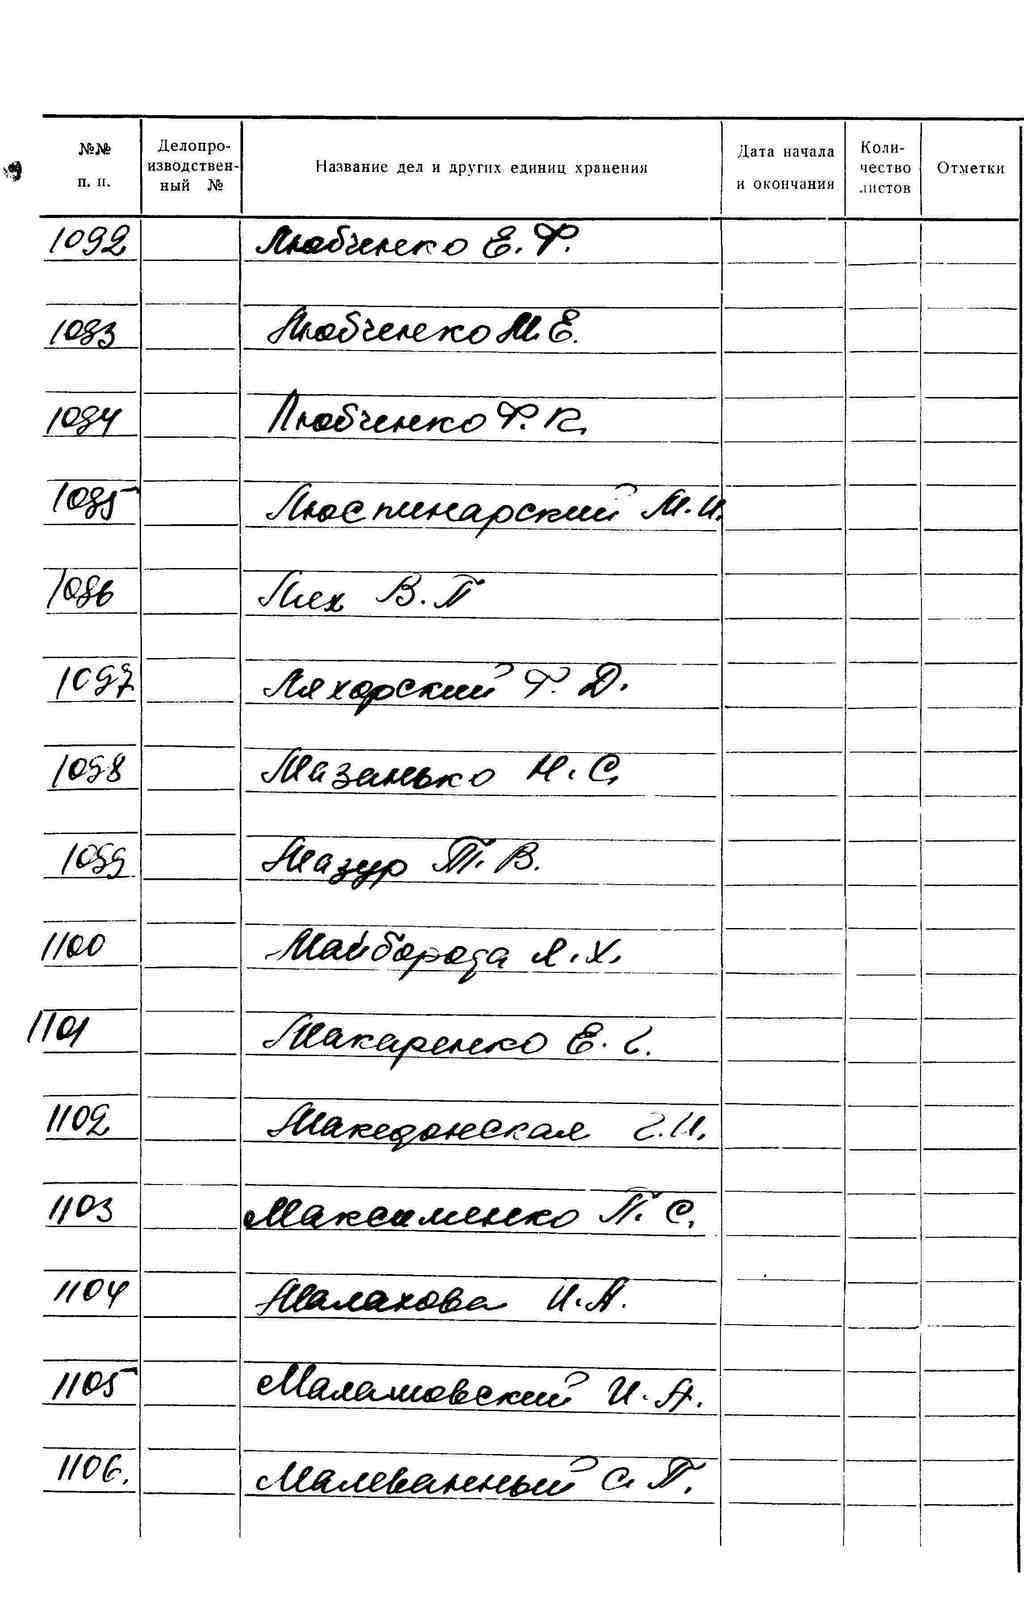 №№ п. п. Делопроизводственный № Название дел и других единиц хранения Дата начала и окончания Количество листов Отметки
1092 Любченко Е. Ф.
1093 Любченко М. Е.
1094 Любченко Ф. К.
1095 Люспинарский М. И.
1096 Лях В. П
1097 Ляхорский Г. Д.
1098 Мазанько Н. С.
1099 Мазур Т. В.
1100 Майборода Я. Х.
1101 Макаренко Е. г.
1102 Македонская г. И.
1103 Максименко П. С.
1104 Малахова И. А.
1105 Маламовский И. А.
1106. Малеванный С П.